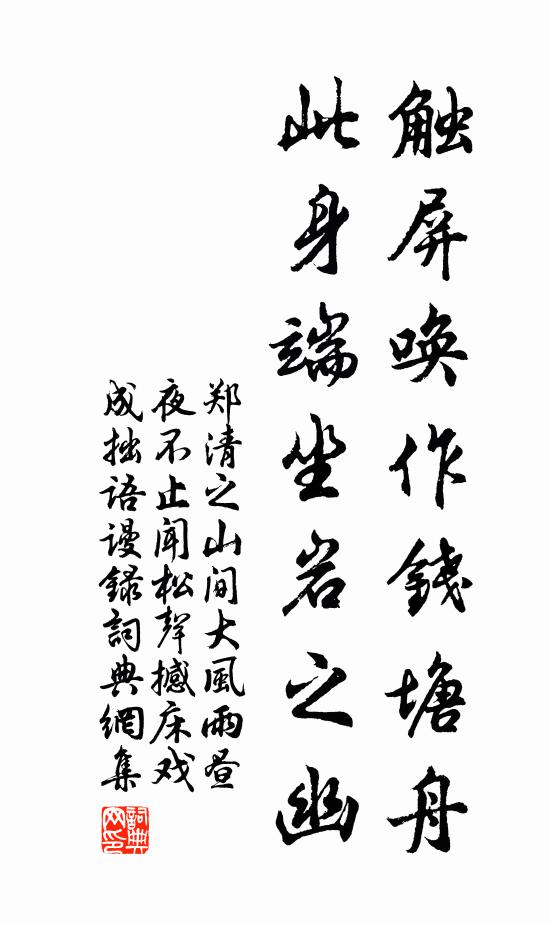 触屏唤作钱塘舟
此身端坐岩之幽
郑清之山间大风雨昼
夜不止闻松声撼床戏
成拙语谩录词典网集
詞典
网印